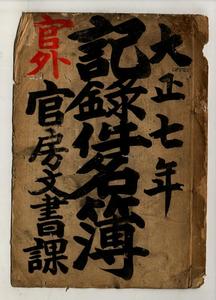 大正七年
記録件名簿
官房文書課
官外